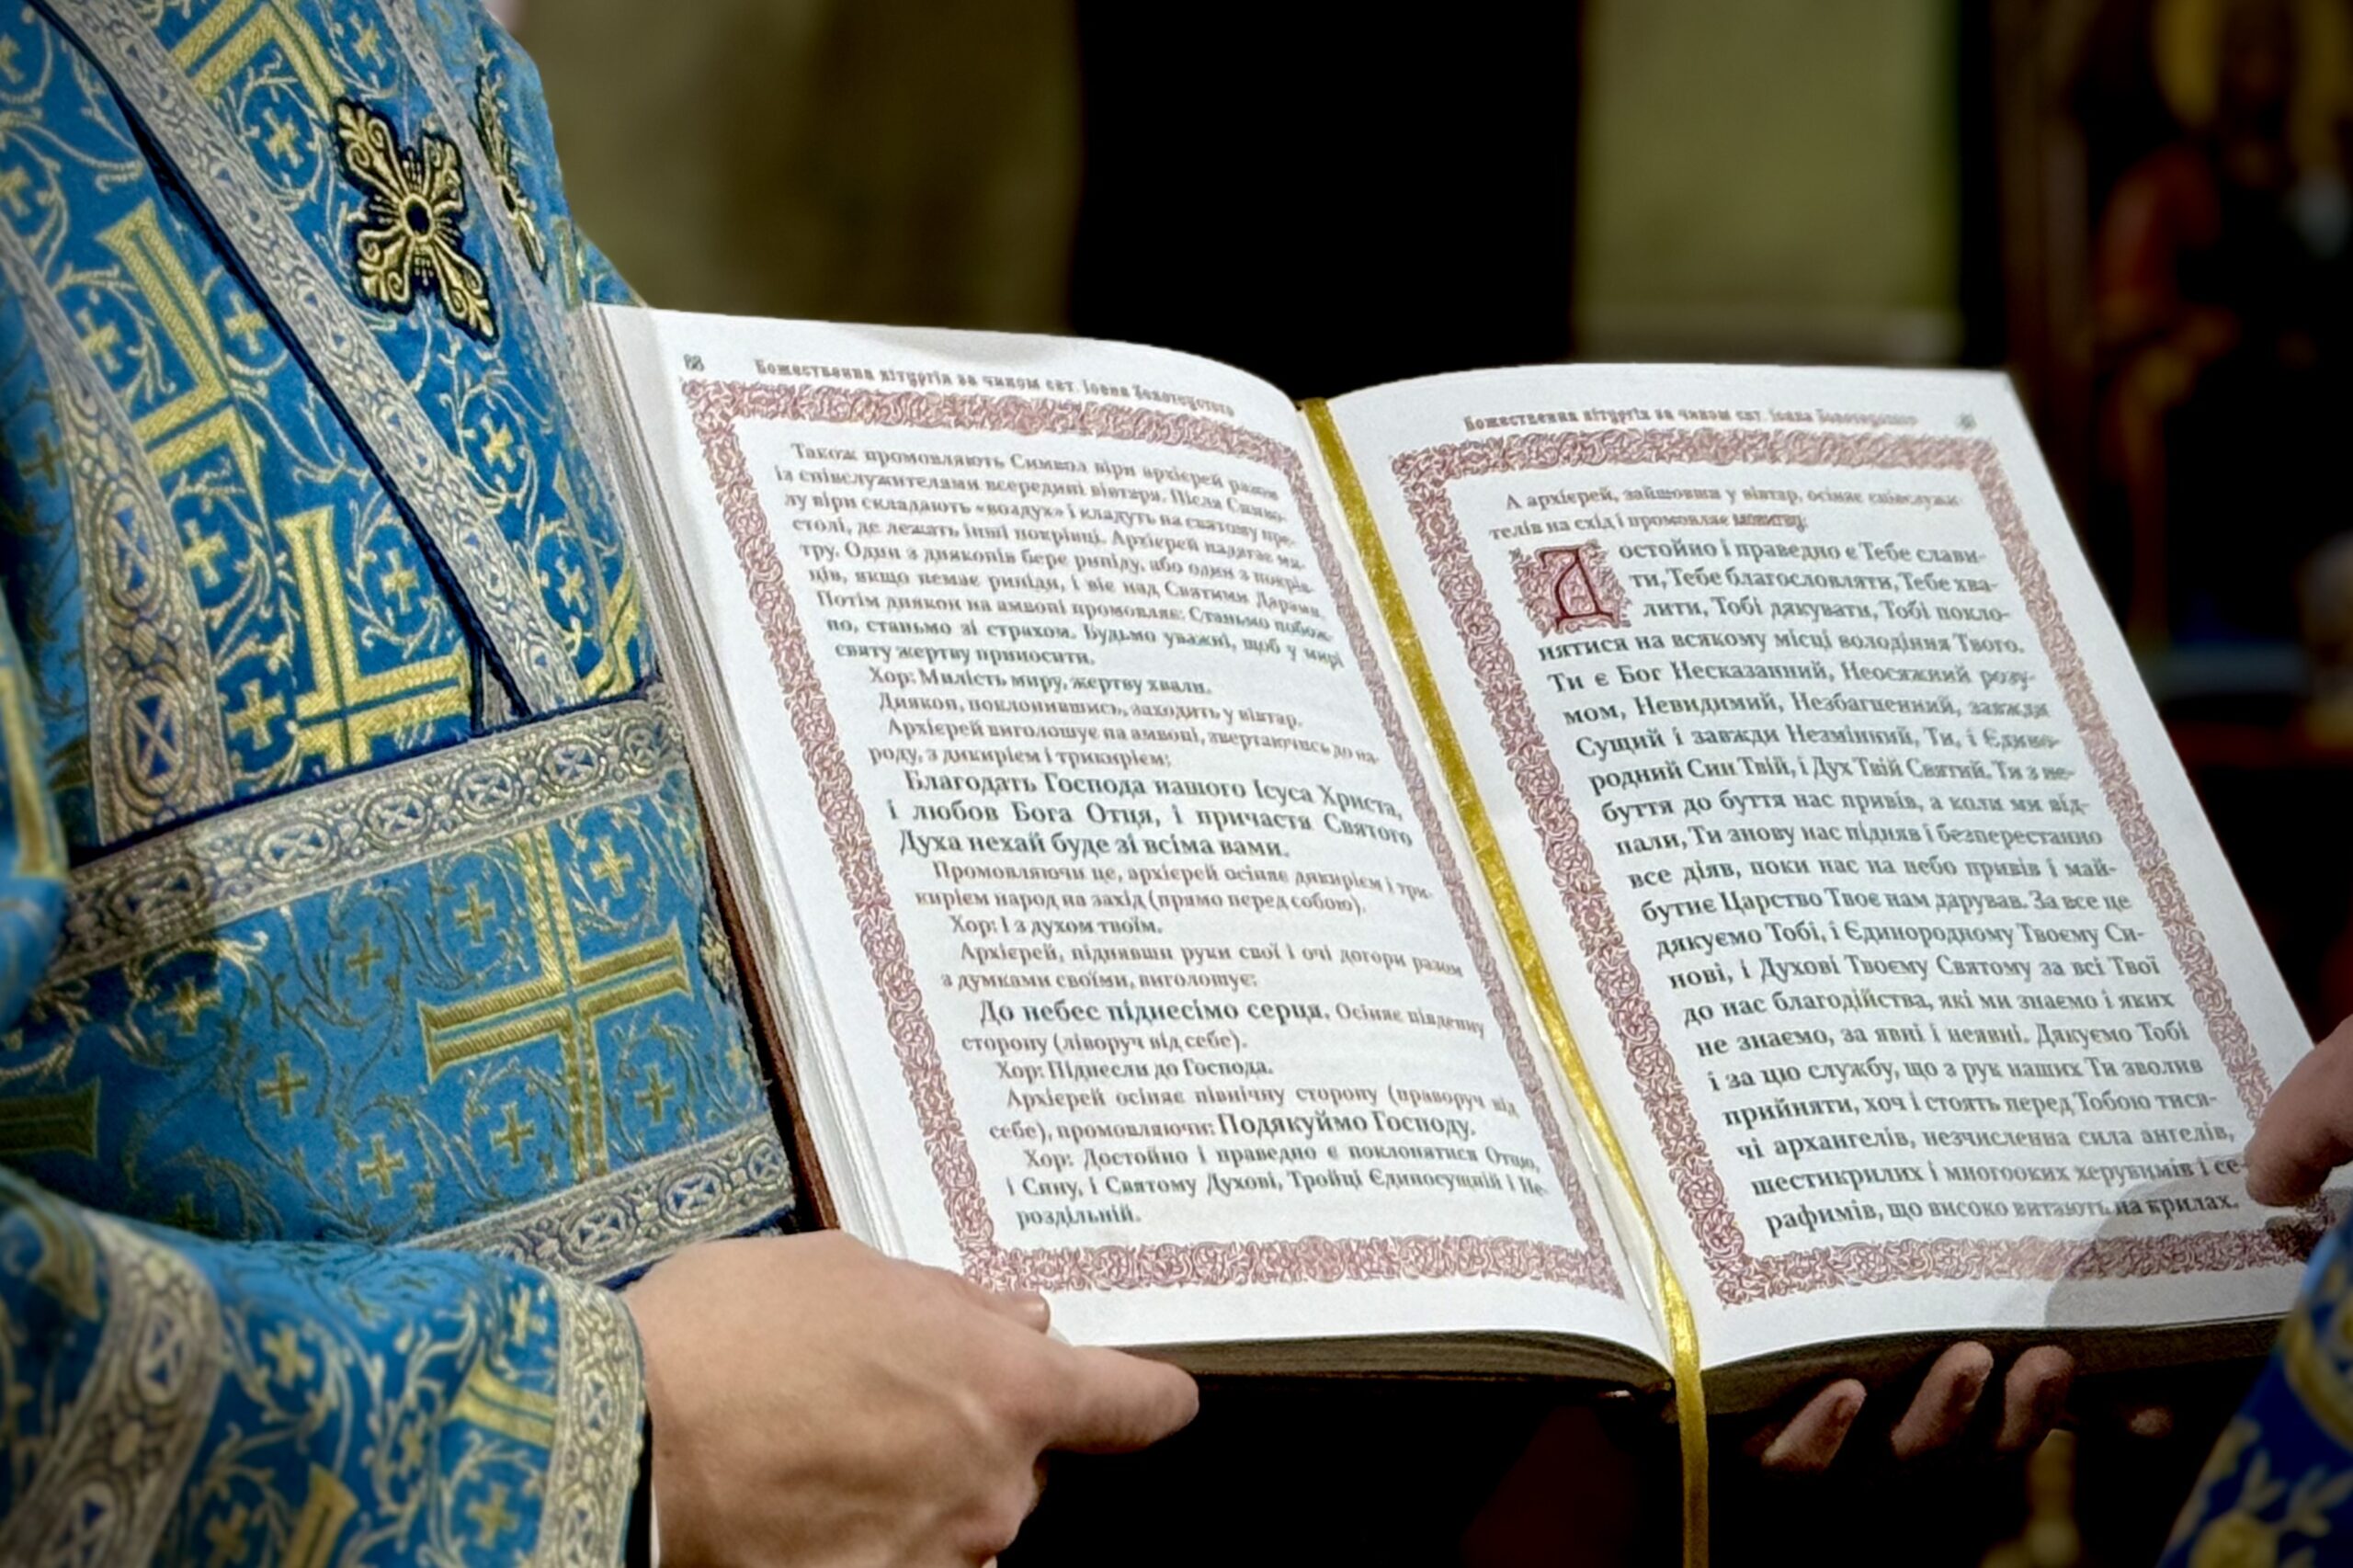 88 Божественна літургія за чином свт. Іоана Золотоустого
Також промовляють Символ віри архієрей разом
із співслужителями всередині вівтаря. Після Симво-
лу віри складають «воздух» і кладуть на святому пре-
столі, де лежать інші покрівці. Архієрей надягає ми-
тру. Один з дияконів бере рипіду, або один з покрів-
ців, якщо немає рипіди, і віє над Святими Дарами.
Потім диякон на амвоні промовляє: Станьмо побож-
но, станьмо зі страхом. Будьмо уважні, щоб у мирі
святу жертву приносити.
Хор: Милість миру, жертву хвали.
Диякон, поклонившись, заходить у вівтар.
Архієрей виголошує на амвоні, звертаючись до на-
роду, з дикирієм і трикирієм:
Благодать Господа нашого Ісуса Христа,
і любов Бога Отця, і причастя Святого
Духа нехай буде зі всіма вами.
Промовляючи це, архієрей осіняє дикирієм і три-
кирієм народ на захід (прямо перед собою).
Хор: І з духом твоїм.
Архієрей, піднявши руки свої і очі догори разом
з думками своїми, виголошує:
До небес піднесімо серця. Осіняє південну
сторону (ліворуч від себе).
Хор: Піднесли до Господа.
Архієрей осіняє північну сторону (праворуч від
себе), промовляючи: Подякуймо Господу.
Хор: Достойно і праведно є поклонятися Отцю,
і Сину, і Святому Духові, Тройці Єдиносущній і Не-
роздільній.
Божественна літургія за чином свт. Іоана Золотоустого
А архієрей, зайшовши у вівтар, осіняє співслужи-
телів на схід і промовляє молитву:
Достойно і праведно є Тебе слави-
ти, Тебе благословляти, Тебе хва-
лити, Тобі дякувати, Тобі покло-
нятися на всякому місці володіння Твого.
Ти є Бог Несказанний, Неосяжний розу-
мом, Невидимий, Незбагненний, завжди
Сущий і завжди Незмінний, Ти, і Єдино-
родний Син Твій, і Дух Твій Святий. Ти з не-
буття до буття нас привів, а коли ми від-
пали, Ти знову нас підняв і безперестанно
все діяв, поки нас на небо привів і май-
бутнє Царство Твоє нам дарував. За все це
дякуємо Тобі, і Єдинородному Твоєму Си-
нові, і Духові Твоєму Святому за всі Твої
до нас благодійства, які ми знаємо і яких
не знаємо, за явні і неявні. Дякуємо Тобі
і за цю службу, що з рук наших Ти зволив
прийняти, хоч і стоять перед Тобою тися-
чі архангелів, незчисленна сила ангелів,
шестикрилих і многооких херувимів і се-
рафимів, що високо витають на крилах.